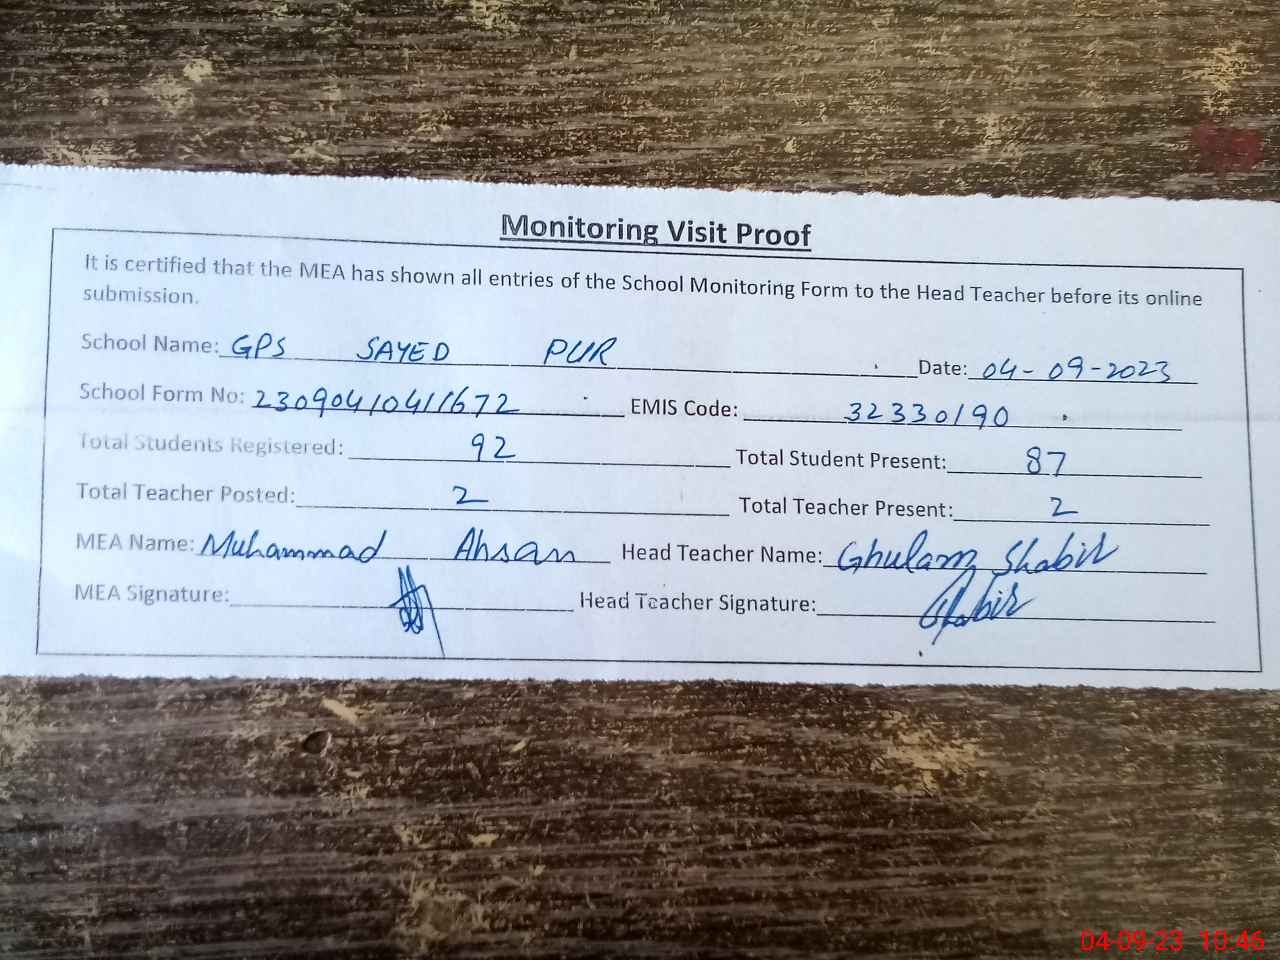 Monitoring Visit Proof
It is certified that the MEA has shown all entries of the School Monitoring Form to the Head Teacher before its online
submission.
School Name: GPS SAYED PUR Date: 04-09-2023
School Form No: 2309041041672 EMIS Code: 32330190
Total Students Registered: 92 Total Student Present: 87
Total Teacher Posted: 2 Total Teacher Present: 2
MEA Name: Muhammad Ahsan Head Teacher Name: Ghulam Shabir
MEA Signature: Head Teacher Signature: Shabir
04-09-23 10:46